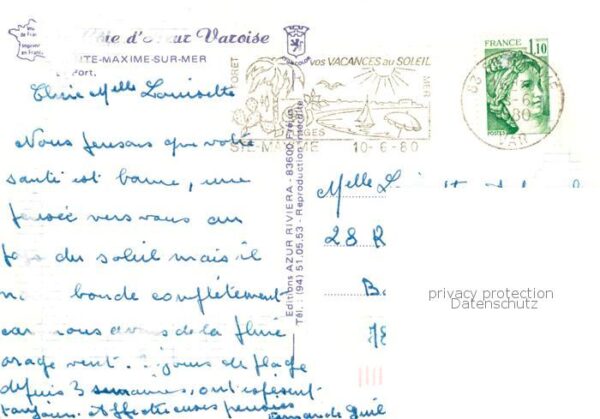 Côte d'Azur Varoise
STE-MAXIME-SUR-MER
Port,
Chère Melle Louisette
Nous pensons que votre
santé est bonne, une
pensée vers vous au
pays du soleil mais il
bonde complètement
car nous avons de la pluie
orage vent. jours de plage
depuis 3 semaines, ont espèrent
toujours. Affectueuses pensées
Editions AZUR RIVIERA - 83600 Fréjus
Tél. : (94) 51.05.53 - Reproduction interdite
FORET
vos VACANCES au SOLEIL
MER
PLAGES
STE-MAXIME 10-6-80
FRANCE 1,10
POSTES
80
VAR
Melle
28 R
B
78
privacy protection
Datenschutz